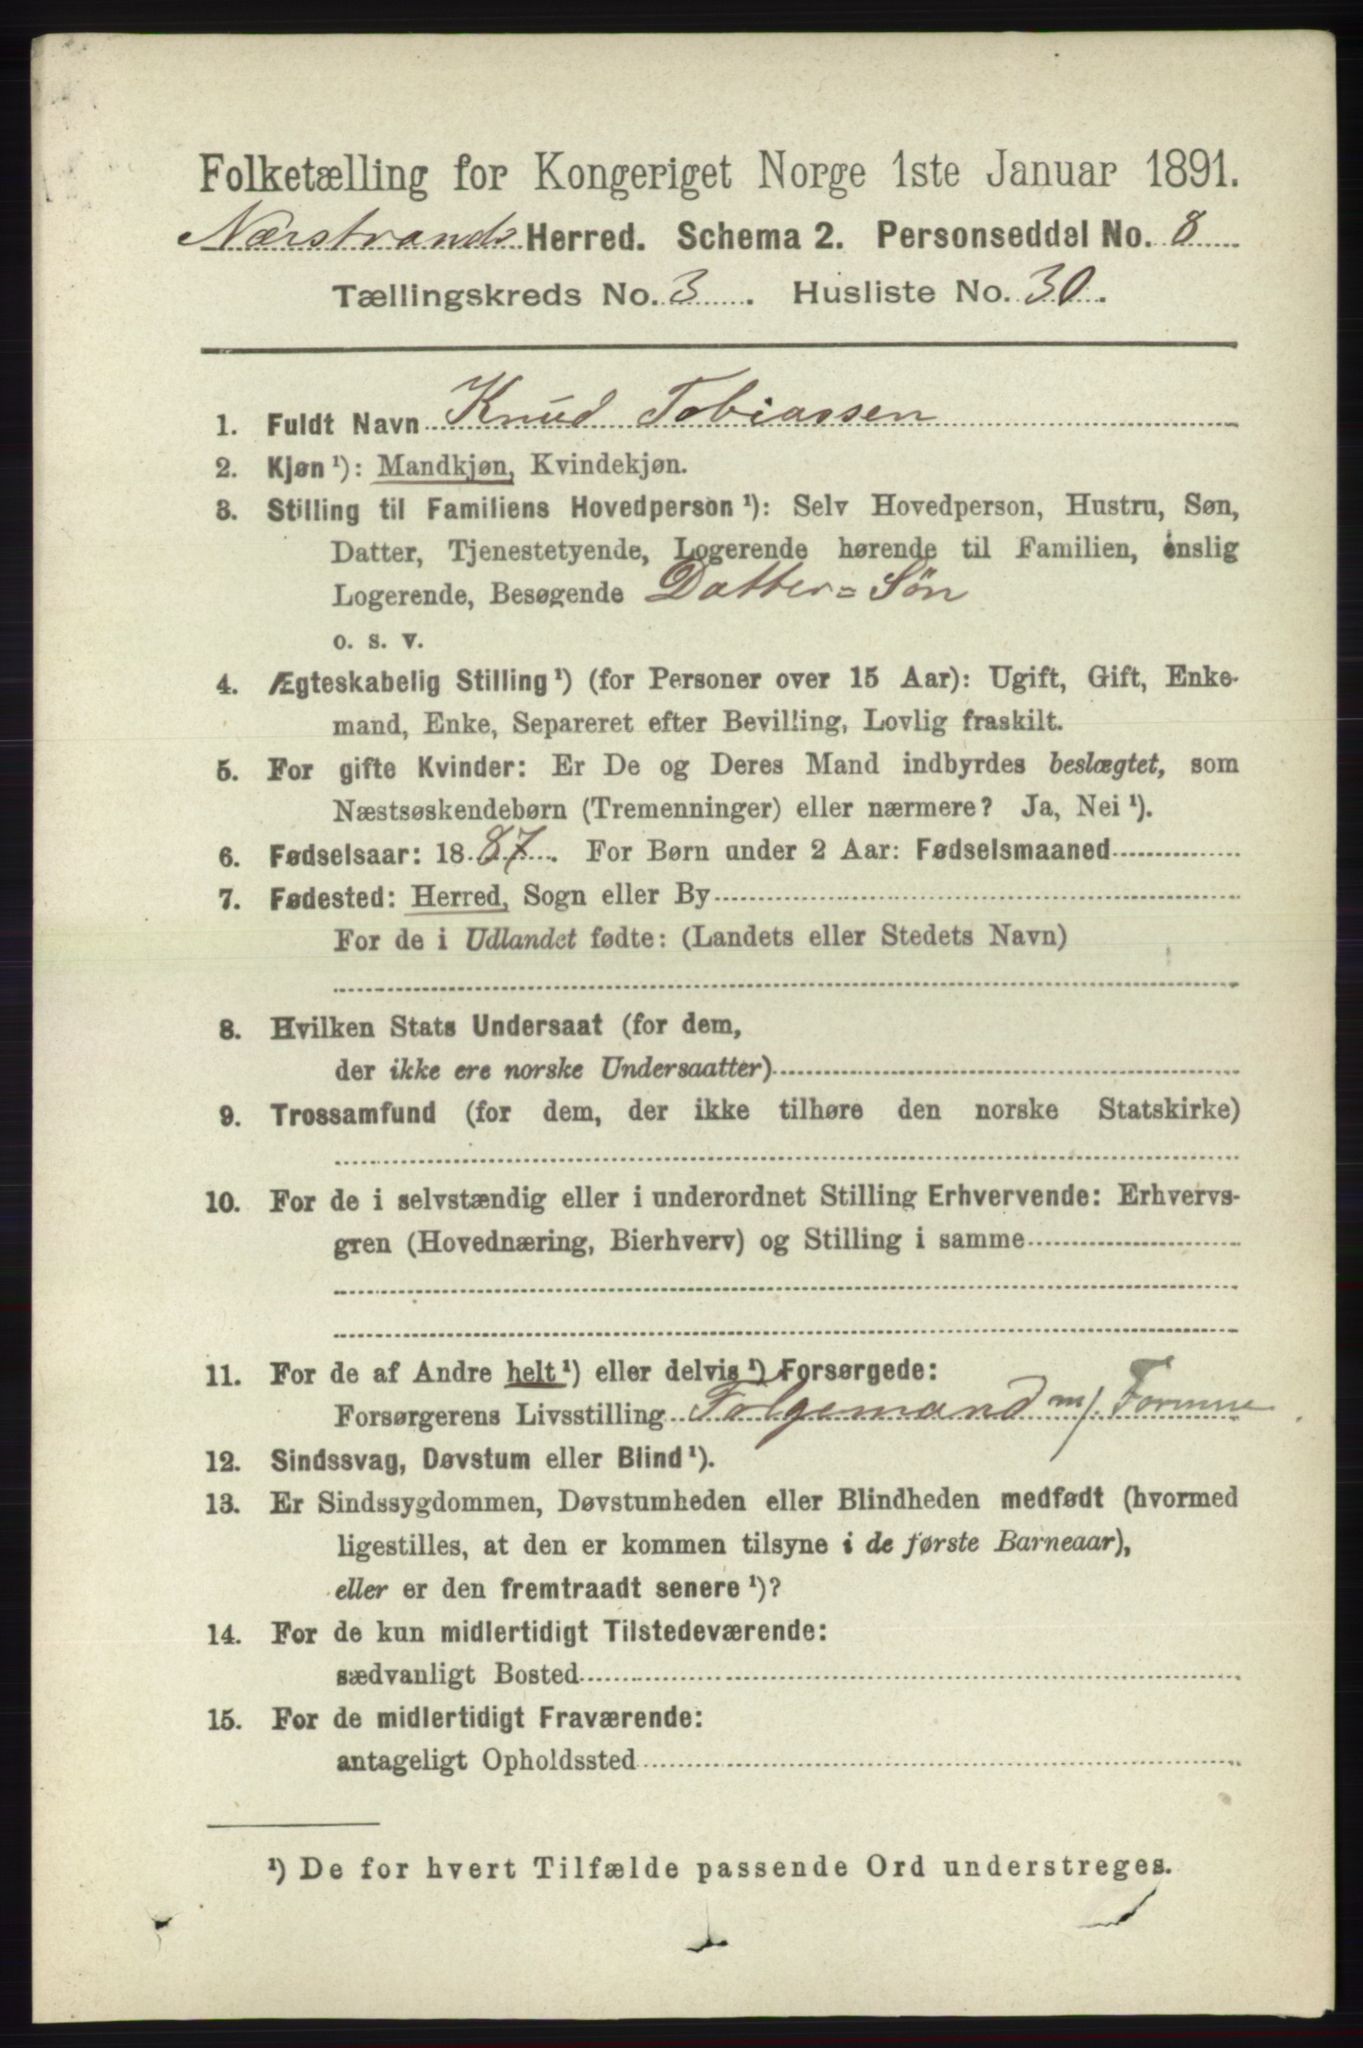 Folketælling for Kongeriget Norge 1ste Januar 1891.
Nærstrands Herred. Schema 2. Personseddel No. 8
Tællingskreds No. 3. Husliste No. 30.
1. Fuldt Navn Knud Tobiassen
2. Kjøn ¹): Mandkjøn, Kvindekjøn.
3. Stilling til Familiens Hovedperson ¹): Selv Hovedperson, Hustru, Søn,
Datter, Tjenestetyende, Logerende hørende til Familien, enslig
Logerende, Besøgende Datter=Søn
o. s. v.
4. Ægteskabelig Stilling ¹) (for Personer over 15 Aar): Ugift, Gift, Enke-
mand, Enke, Separeret efter Bevilling, Lovlig fraskilt.
5. For gifte Kvinder: Er De og Deres Mand indbyrdes beslægtet, som
Næstsøskendebørn (Tremenninger) eller nærmere? Ja, Nei ¹).
6. Fødselsaar: 1887. For Børn under 2 Aar: Fødselsmaaned
7. Fødested: Herred, Sogn eller By
For de i Udlandet fødte: (Landets eller Stedets Navn)
8. Hvilken Stats Undersaat (for dem,
der ikke ere norske Undersaatter)
9. Trossamfund (for dem, der ikke tilhøre den norske Statskirke)
10. For de i selvstændig eller i underordnet Stilling Erhvervende: Erhvervs-
gren (Hovednæring, Bierhverv) og Stilling i samme
11. For de af Andre helt ¹) eller delvis ¹) Forsørgede:
Forsørgerens Livsstilling Folgemand m/ Formue
12. Sindssvag, Døvstum eller Blind ¹).
13. Er Sindssygdommen, Døvstumheden eller Blindheden medfødt (hvormed
ligestilles, at den er kommen tilsyne i de første Barneaar),
eller er den fremtraadt senere ¹)?
14. For de kun midlertidigt Tilstedeværende:
sædvanligt Bosted
15. For de midlertidigt Fraværende:
antageligt Opholdssted
¹) De for hvert Tilfælde passende Ord understreges.